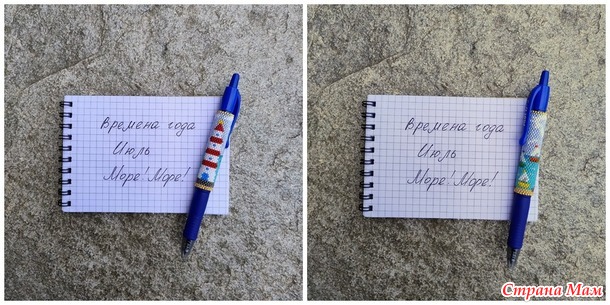 Времена года
Июль
Море! Море!
Времена года
Июль
Море! Море!
Страна Мам